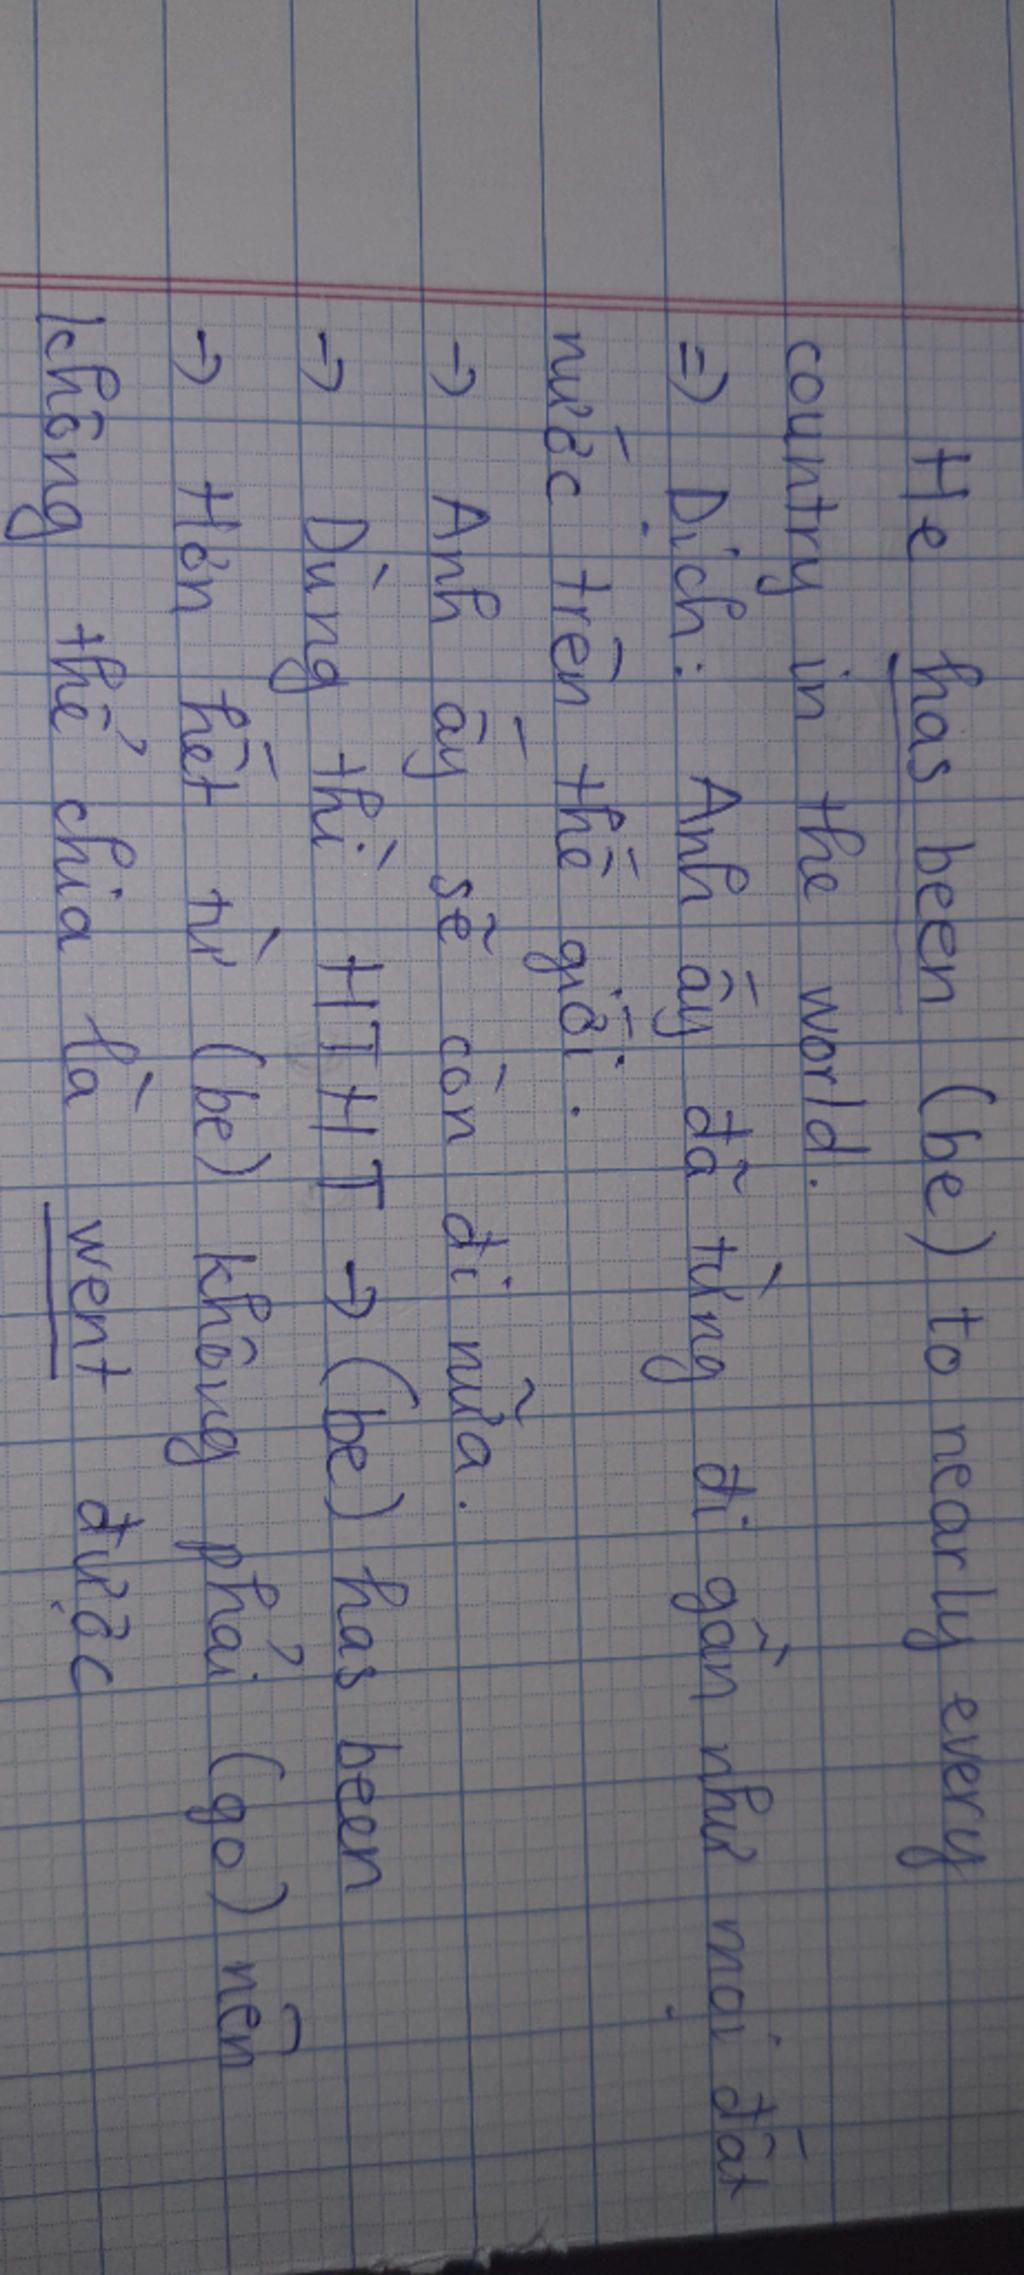 He has been (be) to nearly every
country in the world.
=) Dịch: Anh ấy đã từng đi gần như mọi đất
nước trên thế giới.
→ Anh ấy sẽ còn đi nữa.
→ Dùng thì HTHT → (be) has been
→ Hơn hết từ (be) không phải (go) nên
không thể chia là went được